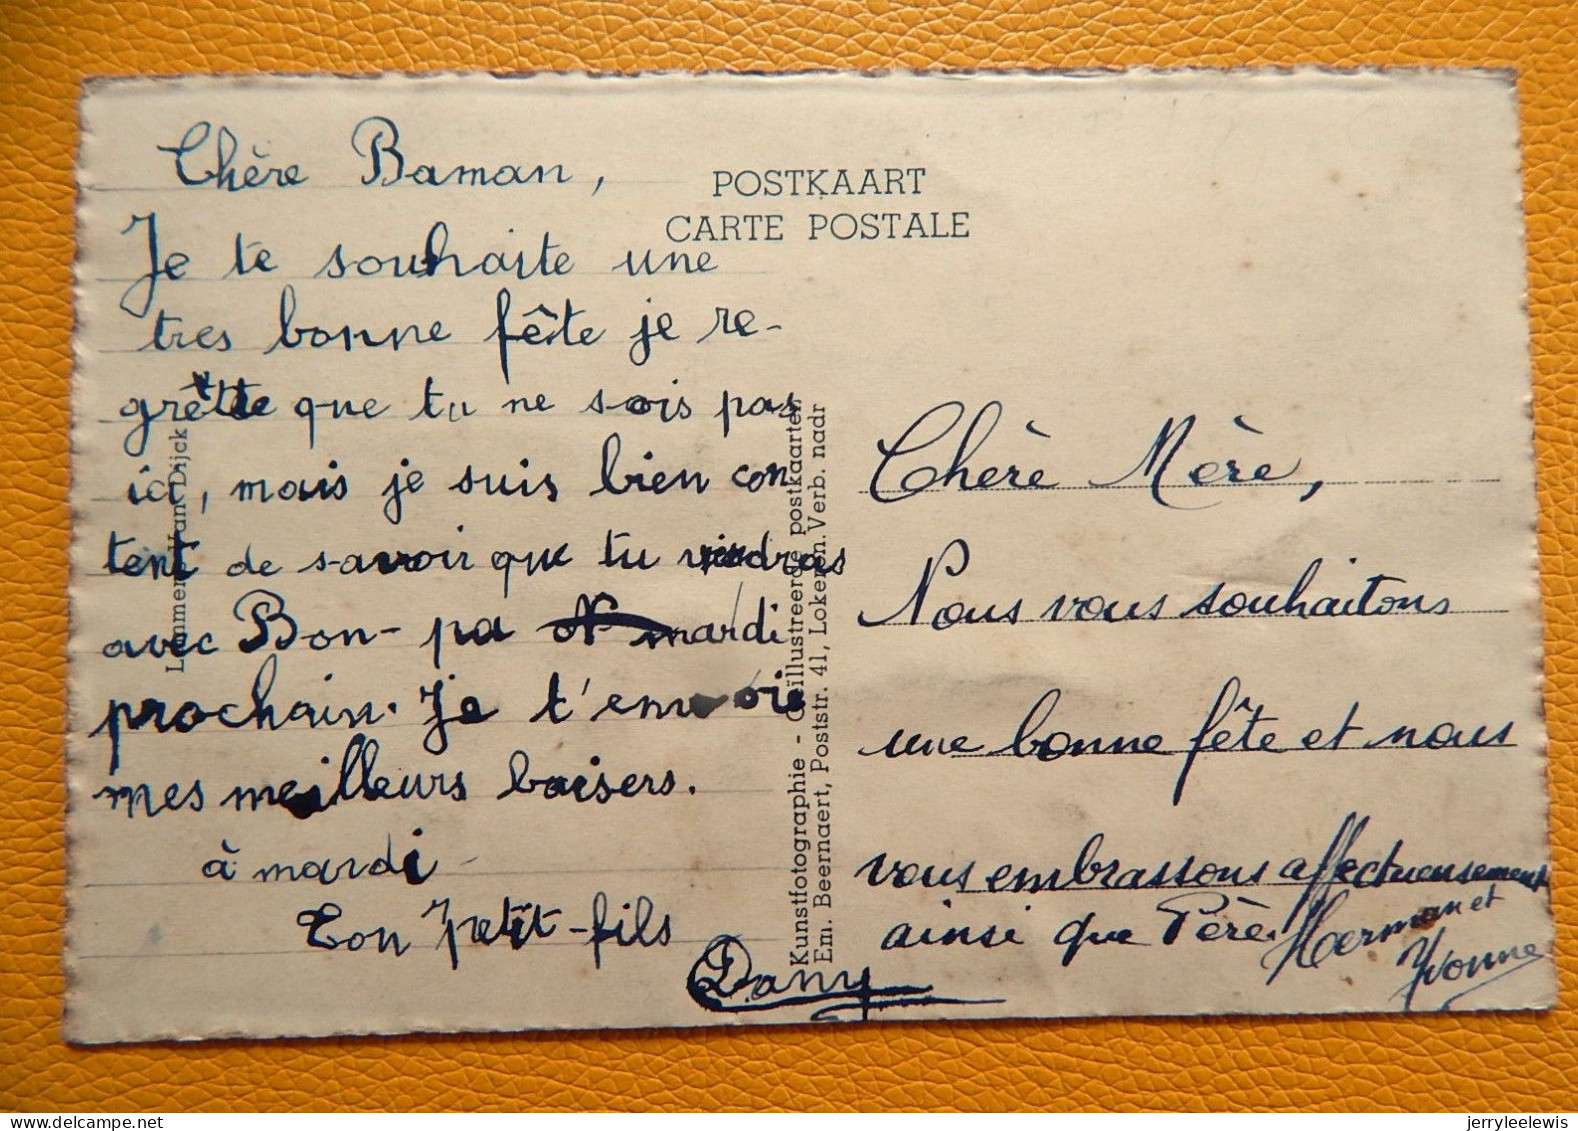 Chère Baman,
Je te souhaite une
tres bonne fête je re-
grètte que tu ne sois pas
ici, mais je suis bien con
tent de savoir que tu viendras
avec Bon-pa mardi
prochain. Je t'envoie
mes meilleurs baisers.
à mardi
Ton petit-fils
Dany
POSTKAART
CARTE POSTALE
Van Dijck
Kunstfotographie - Geïllustreerde postkaarten
Em. Beernaert, Poststr. 41, Lokeren. Verb. nadr
Chère Mère,
Nous vous souhaitons
une bonne fête et nous
vous embrassons affectueusement
ainsi que Père.
Herman et
Yvonne
delcampe.net
jerryleelewis